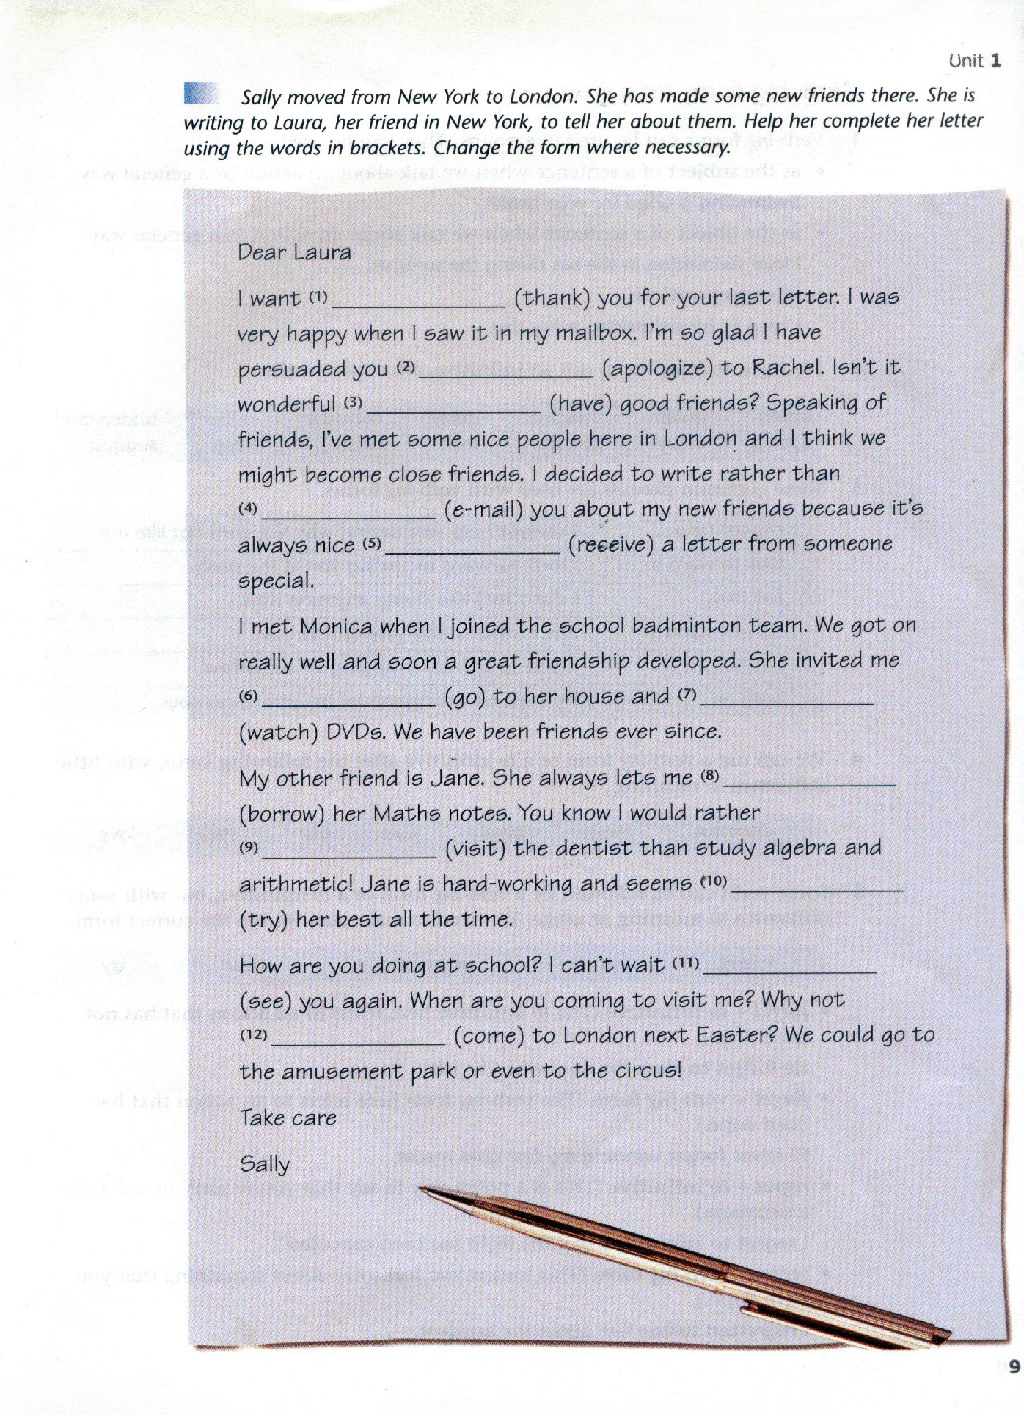 Unit 1
Sally moved from New York to London. She has made some new friends there. She is
writing to Laura, her friend in New York, to tell her about them. Help her complete her letter
using the words in brackets. Change the form where necessary.
Dear Laura
I want (1)________________ (thank) you for your last letter. I was
very happy when I saw it in my mailbox. I'm so glad I have
persuaded you (2)________________ (apologize) to Rachel. Isn't it
wonderful (3)________________ (have) good friends? Speaking of
friends, I've met some nice people here in London and I think we
might become close friends. I decided to write rather than
(4)________________ (e-mail) you about my new friends because it's
always nice (5)________________ (receive) a letter from someone
special.
I met Monica when I joined the school badminton team. We got on
really well and soon a great friendship developed. She invited me
(6)________________ (go) to her house and (7)________________
(watch) DVDs. We have been friends ever since.
My other friend is Jane. She always lets me (8)________________
(borrow) her Maths notes. You know I would rather
(9)________________ (visit) the dentist than study algebra and
arithmetic! Jane is hard-working and seems (10)________________
(try) her best all the time.
How are you doing at school? I can't wait (11)________________
(see) you again. When are you coming to visit me? Why not
(12)________________ (come) to London next Easter? We could go to
the amusement park or even to the circus!
Take care
Sally
9